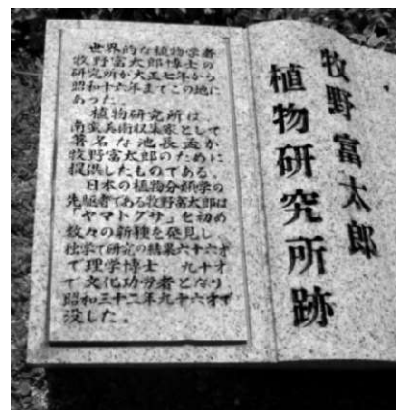 牧野富太郎
植物研究所跡
世界的な植物学者
牧野富太郎博士の
研究所が大正七年から
昭和十六年までこの地に
あった。
植物研究所は
南蛮美術収集家として
著名な池長孟が
牧野富太郎のために
提供したものである。
日本の植物分類学の
先駆者である牧野富太郎は
「ヤマトグサ」を初め
数々の新種を発見し
独学で研究の結果六十六才
で理学博士 九十才
で文化功労者となり
昭和三十二年九十六才で
没した。